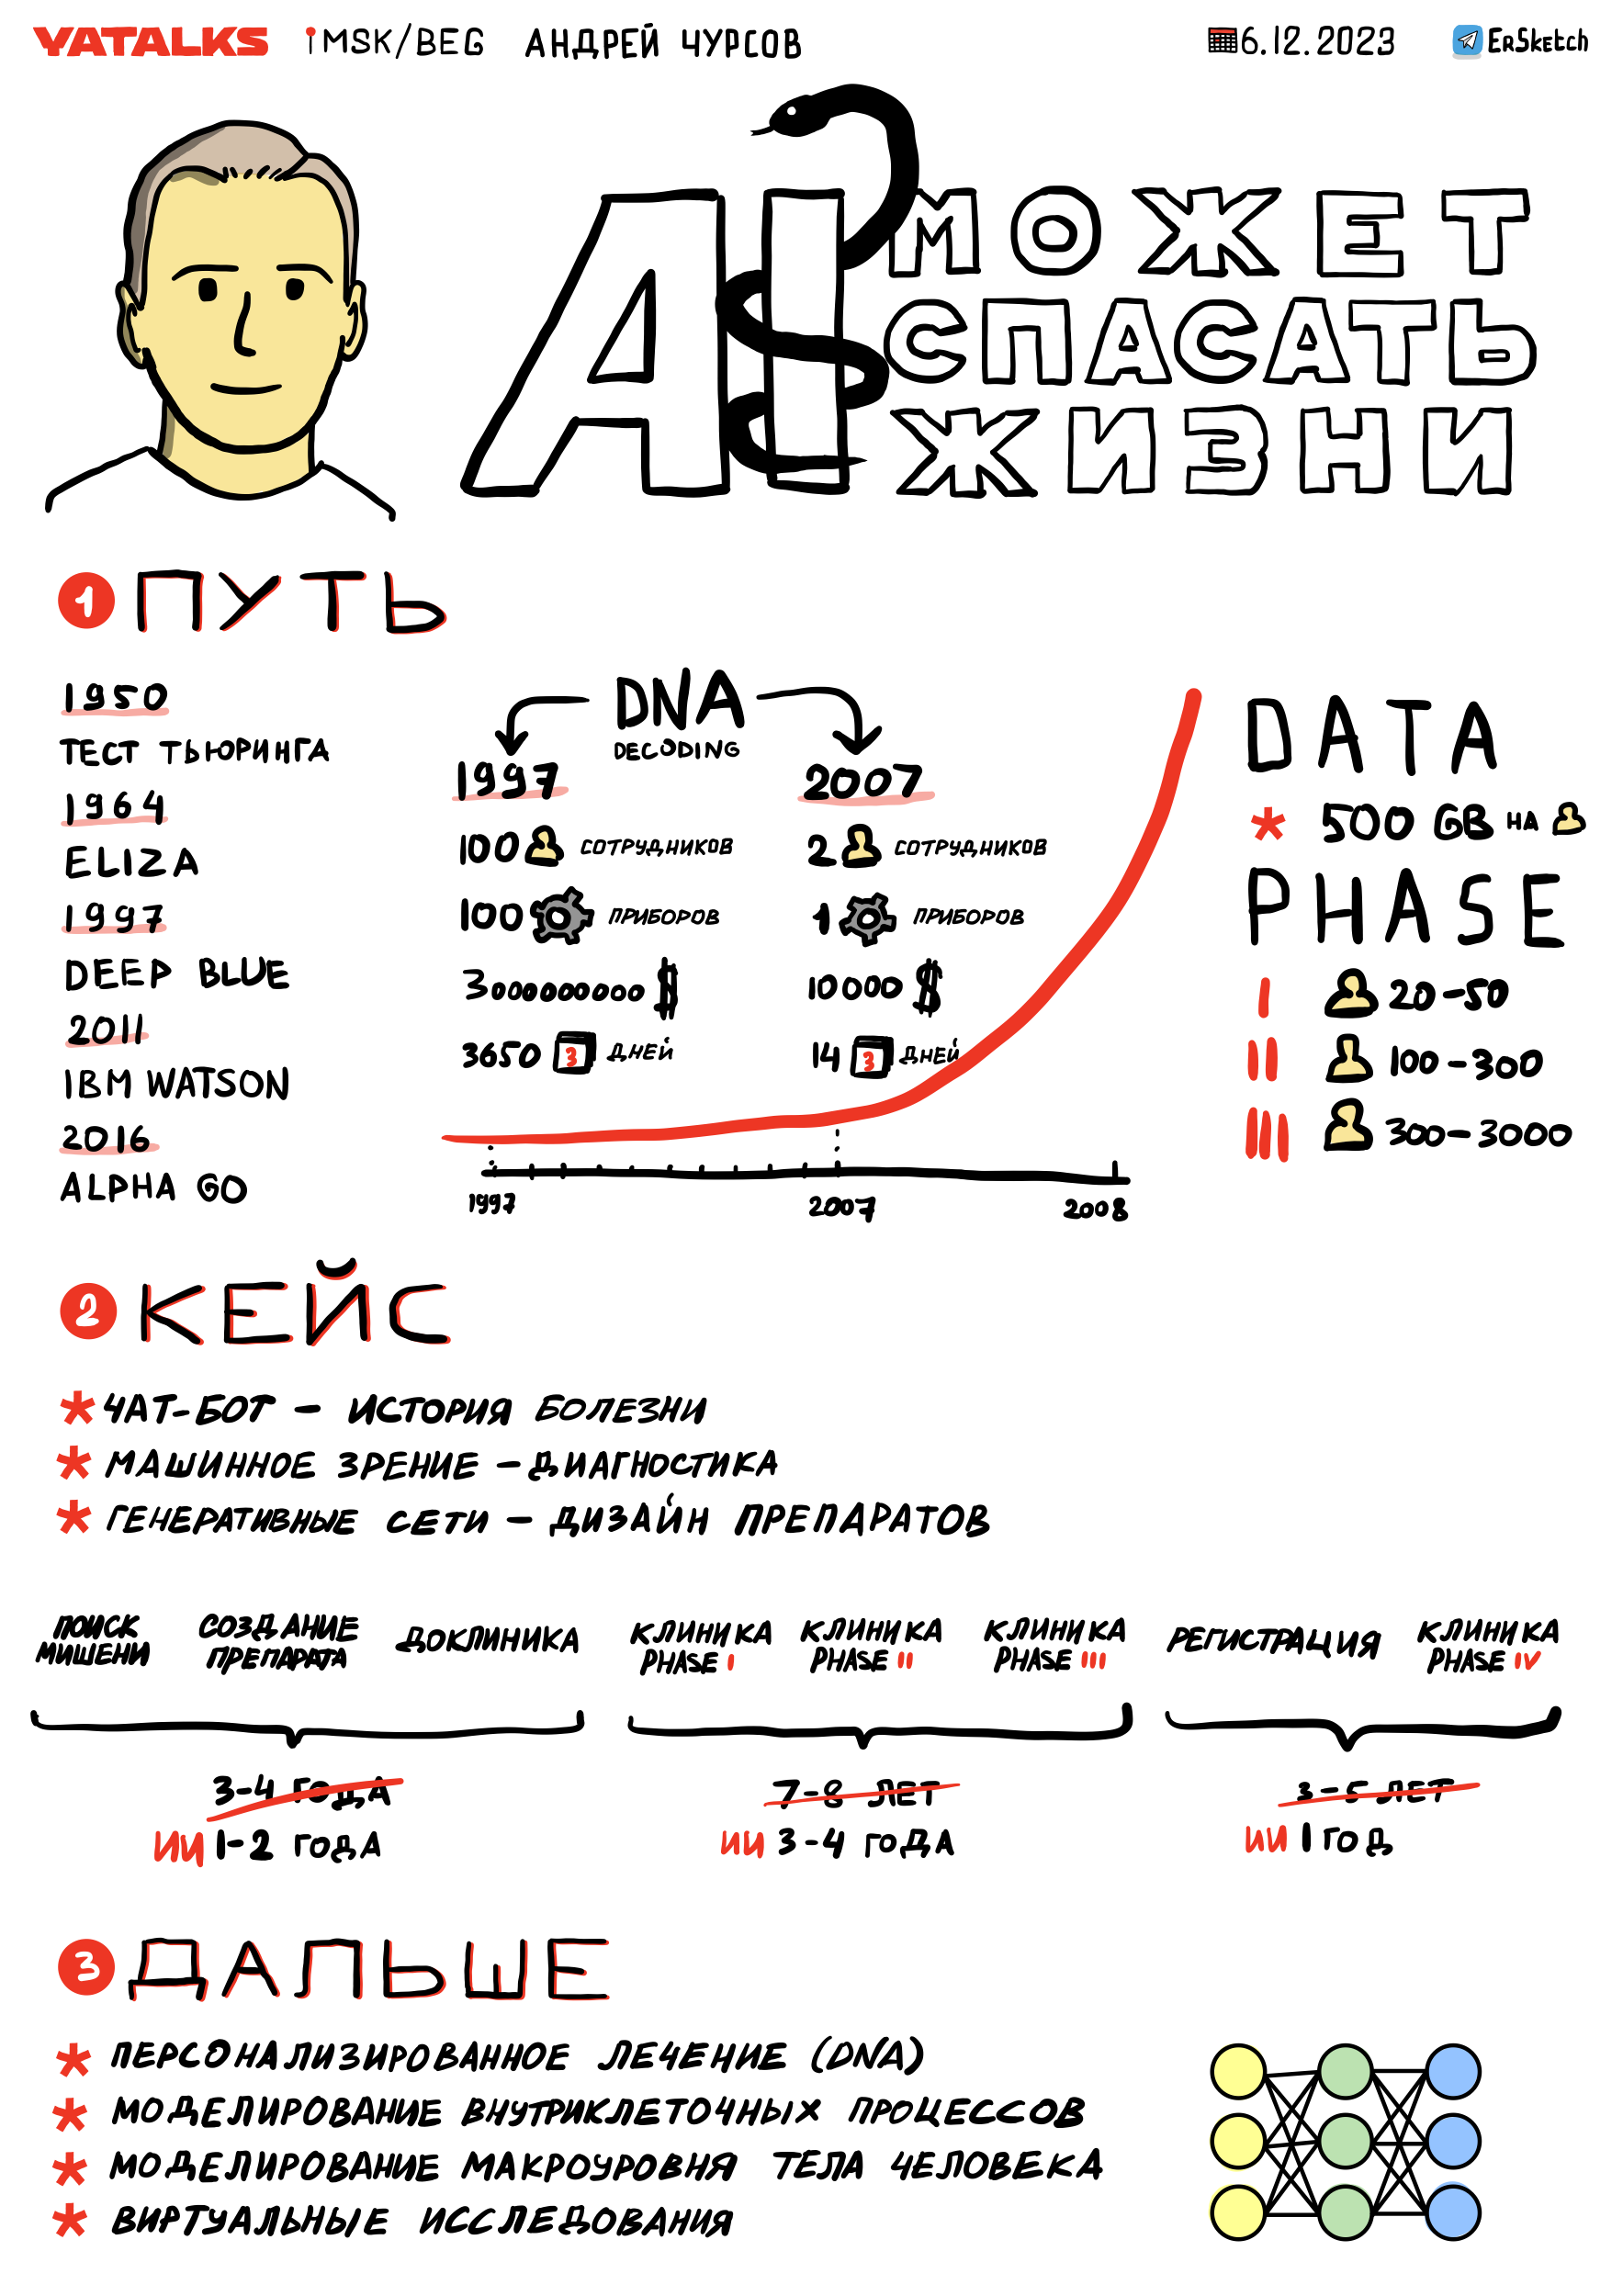 YATALKS MSK/BEG АНДРЕЙ ЧУРСОВ 6.12.2023 ErSketch
AI МОЖЕТ
СПАСАТЬ
ЖИЗНИ
1 ПУТЬ
1950
ТЕСТ ТЬЮРИНГА
1964
ELIZA
1997
DEEP BLUE
2011
IBM WATSON
2016
ALPHA GO
DNA
DECODING
1997
100 СОТРУДНИКОВ
100 ПРИБОРОВ
3000000000 $
3650 3 ДНЕЙ
2007
2 СОТРУДНИКОВ
1 ПРИБОРОВ
10000 $
14 3 ДНЕЙ
1997 2007 2008
DATA
* 500 GB НА
PHASE
I 20-50
II 100-300
III 300-3000
2 КЕЙС
* ЧАТ-БОТ - ИСТОРИЯ БОЛЕЗНИ
* МАШИННОЕ ЗРЕНИЕ - ДИАГНОСТИКА
* ГЕНЕРАТИВНЫЕ СЕТИ - ДИЗАЙН ПРЕПАРАТОВ
ПОИСК
МИШЕНИ
СОЗДАНИЕ
ПРЕПАРАТА
ДОКЛИНИКА
КЛИНИКА
PHASE I
КЛИНИКА
PHASE II
КЛИНИКА
PHASE III
РЕГИСТРАЦИЯ
КЛИНИКА
PHASE IV
3-4 ГОДА
ИИ 1-2 ГОДА
7-8 ЛЕТ
ИИ 3-4 ГОДА
3-5 ЛЕТ
ИИ 1 ГОД
3 ДАЛЬШЕ
* ПЕРСОНАЛИЗИРОВАННОЕ ЛЕЧЕНИЕ (DNA)
* МОДЕЛИРОВАНИЕ ВНУТРИКЛЕТОЧНЫХ ПРОЦЕССОВ
* МОДЕЛИРОВАНИЕ МАКРОУРОВНЯ ТЕЛА ЧЕЛОВЕКА
* ВИРТУАЛЬНЫЕ ИССЛЕДОВАНИЯ